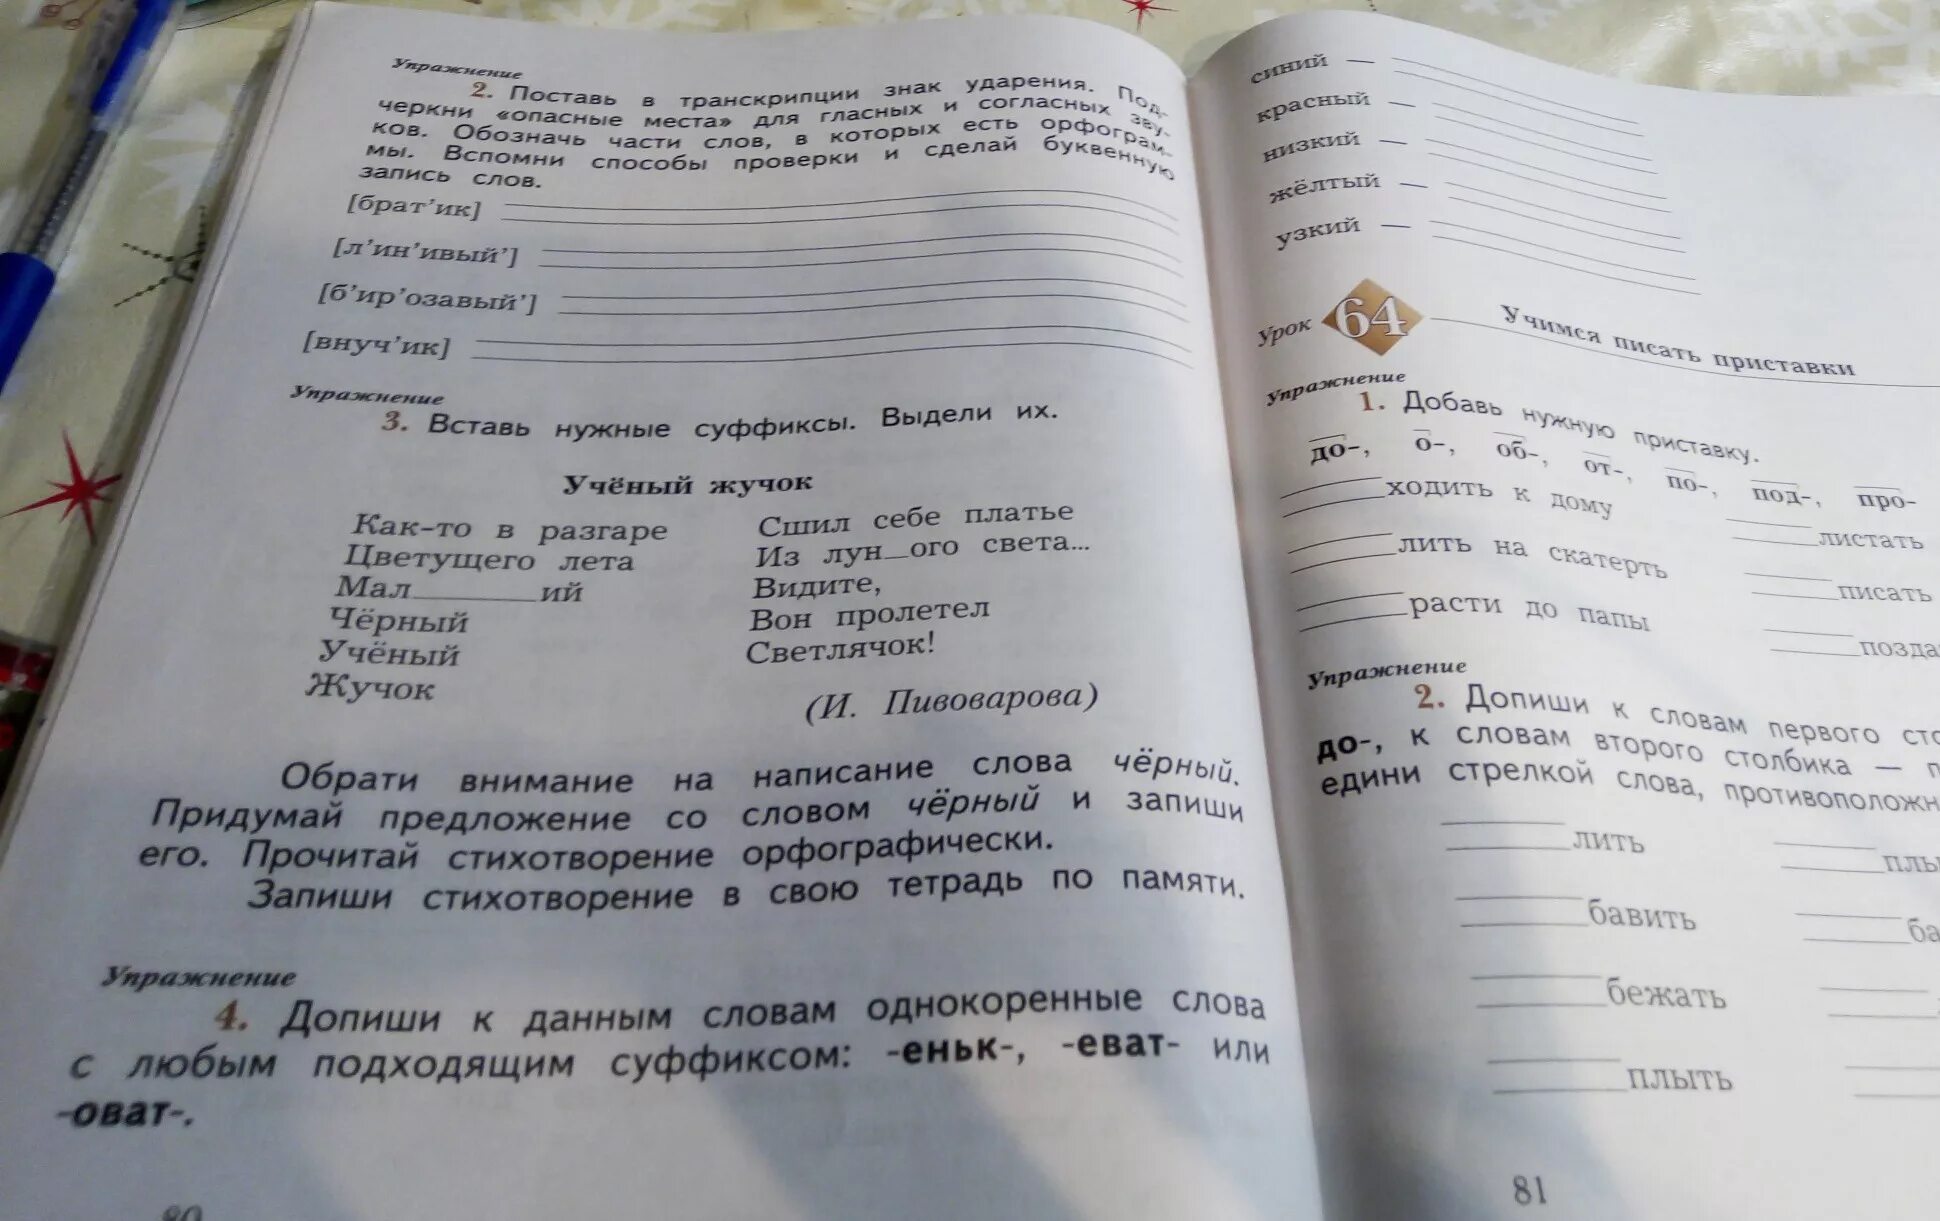 Упражнение
2. Поставь в транскрипции знак ударения. Под-
черкни «опасные места» для гласных и согласных зву-
ков. Обозначь части слов, в которых есть орфограм-
мы. Вспомни способы проверки и сделай буквенную
запись слов.
[брат'ик]
[л'ин'ивый']
[б'ир'озавый']
[внуч'ик]
Упражнение
3. Вставь нужные суффиксы. Выдели их.
Учёный жучок
Как-то в разгаре
Цветущего лета
Мал____ий
Чёрный
Учёный
Жучок
Сшил себе платье
Из лун__ого света...
Видите,
Вон пролетел
Светлячок!
(И. Пивоварова)
Обрати внимание на написание слова чёрный.
Придумай предложение со словом чёрный и запиши
его. Прочитай стихотворение орфографически.
Запиши стихотворение в свою тетрадь по памяти.
Упражнение
4. Допиши к данным словам однокоренные слова
с любым подходящим суффиксом: -еньк-, -еват- или
-оват-.
80
синий —
красный —
низкий —
жёлтый —
узкий —
Урок 64 Учимся писать приставки
Упражнение
1. Добавь нужную приставку.
до-, о-, об-, от-, по-, под-, про-
____ходить к дому ____листать
____лить на скатерть ____писать
____расти до папы ____позда
Упражнение
2. Допиши к словам первого
до-, к словам второго столбика —
едини стрелкой слова, противоположн
____лить ____плы
____бавить ____ба
____бежать
____плыть
81